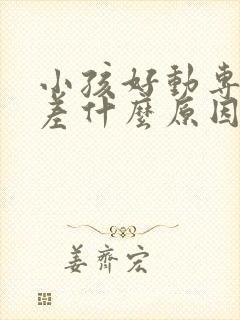 小孩好動專
差什麼原因
姜齊宏